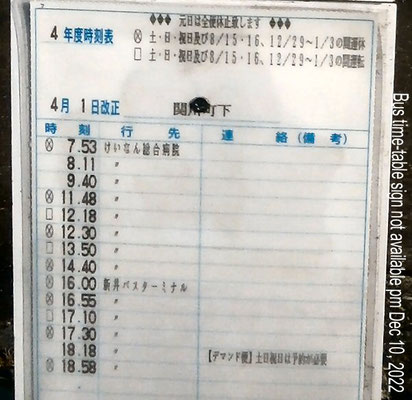 ◆◆◆ 元日は全便休止致します ◆◆◆
4 年度時刻表
⊗ 土・日・祝日及び8/15・16、12/29～1/3の間運休
□ 土・日・祝日及び8/15・16、12/29～1/3の間運転
4月 1日改正
関川町下
時 刻 行 先 連 絡(備 考)
⊗ 7.53 けいなん総合病院
8.11 〃
9.40 〃
⊗ 11.48 〃
□ 12.18 〃
⊗ 12.30 〃
□ 13.50 〃
⊗ 14.40 〃
⊗ 16.00 新井バスターミナル
⊗ 16.55 〃
□ 17.10 〃
⊗ 17.30 〃
18.18 〃 【デマンド便】土日祝日は予約が必要
⊗ 18.58 〃
Bus time-table sign not available pm Dec 10, 2022